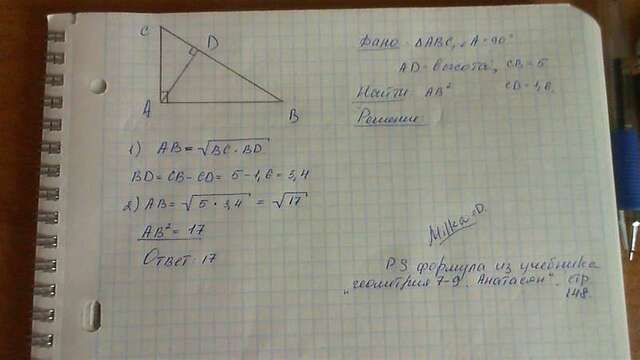 C
D
A
B
Дано: ΔABC, ∠A=90°
AD-высота, CB=5
Найти AB² CD=1,6.
Решение:
1) AB=√BC·BD
BD=CB-CD=5-1,6=3,4
2) AB=√5·3,4=√17
AB²=17
Ответ: 17
Milka =D.
PS формула из учебника
"геолитрия 7-9. Анатасян". стр
148.